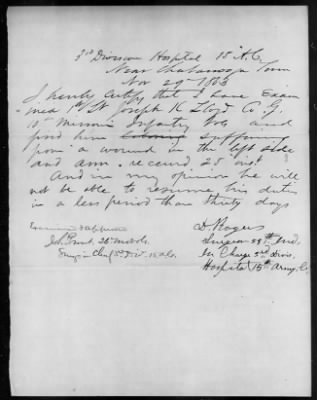 3rd Division Hospital 15 A.C.
Near Chatanooga Tenn
Nov 29th 1863
I hereby Certify that I have Exam
ined 1st Lt Joseph K Co. G.
10th Missouri Infantry Vols and
find him suffering
from a wound in the left side
and arm. received 25 inst
And in my opinion he will
not be able to resume his duties
in a less period than thirty days
D. Rogers
Surgeon Ind.
In Charge 3rd Divis.
Hospital 15th Army Co